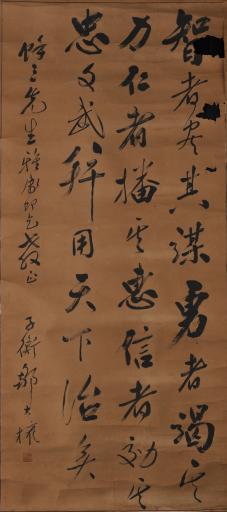 智者尽其謀勇者竭其
力仁者播其惠信者効其
忠文武幷用天下治矣
修三先生雅屬即乞教正
子衡鄭大楨